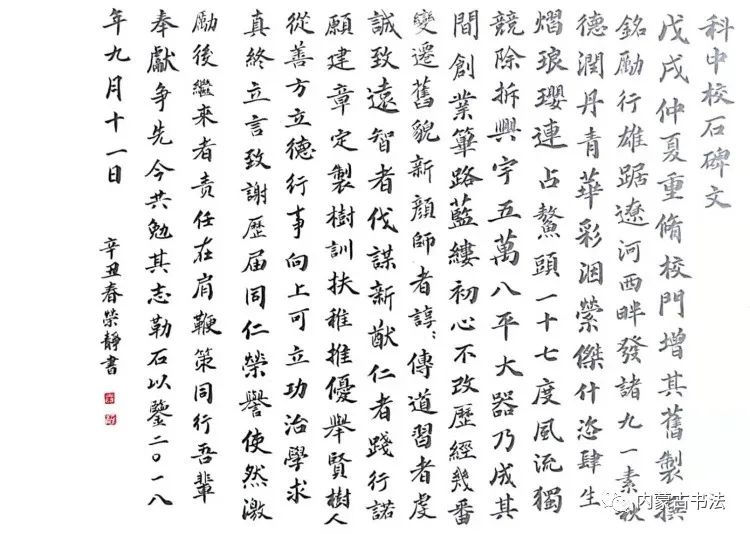 科中校石碑文
戊戌仲夏重脩校門增其舊製撰
銘勵行雄踞遼河西畔發諸九一素秋
德潤丹青華彩洇縈傑什恣肆生
熠琅瓔連占鰲頭一十七度風流獨
競除拆興宇五萬八平大器乃成其
間創業篳路藍縷初心不改歷經幾番
變遷舊貌新顏師者諄〻傳道習者虔
誠致遠智者伐謀新猷仁者踐行諾
願建章定製樹訓扶稚推優舉賢樹人
從善方立德行事向上可立功治學求
真終立言致謝歷届同仁榮譽使然激
勵後繼來者責任在肩鞭策同行吾輩
奉獻争先今共勉其志勒石以鑒二〇一八
年九月十一日
辛丑春榮靜書
内蒙古书法